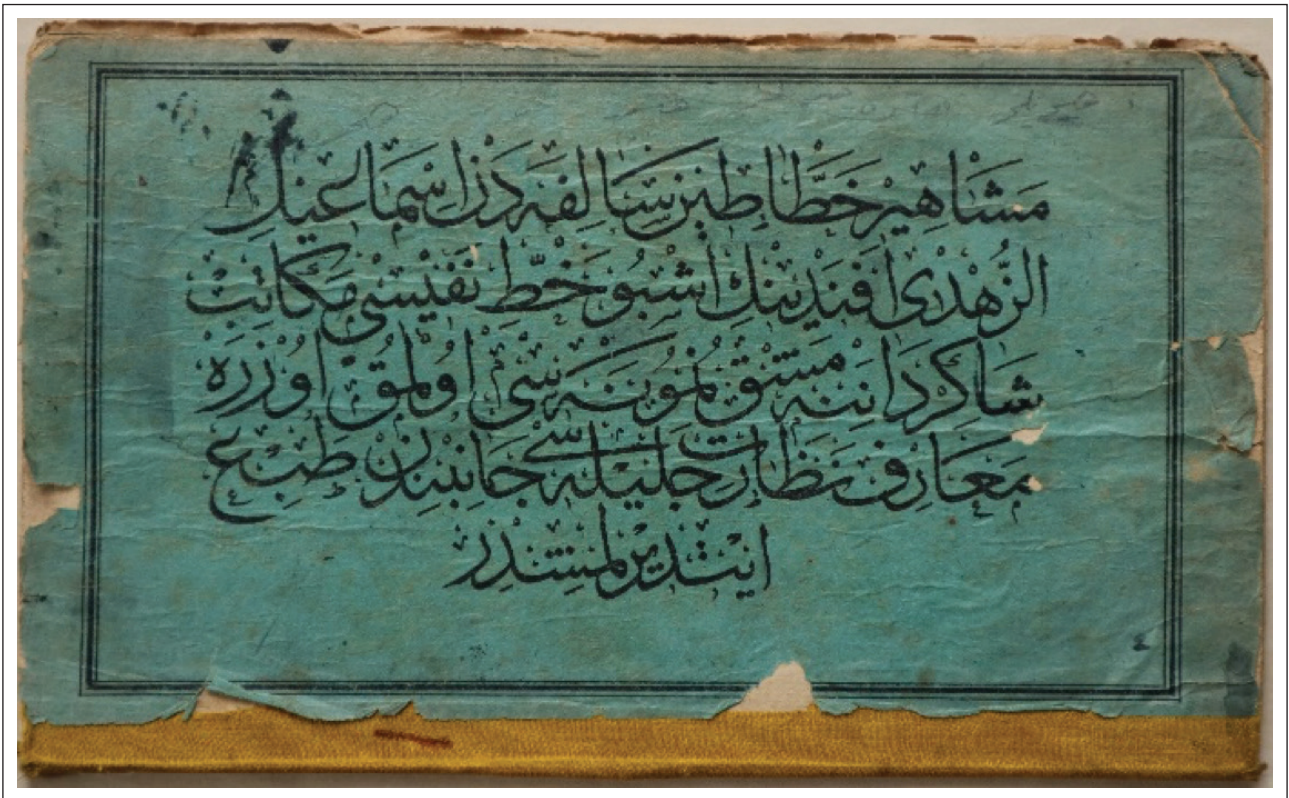 مَشَاهِيرْ خَطَّاطِينِ سَالِفَه دَنْ اِسْمَاعِيلْ
الزُّهْدِى اَفَنْدِينِكْ اِشْبُو خَطِّ نَفِيسْى مَكَاتِبْ
شَاكِرْدَانِنَه مَشْقْ نُمُونَه سِى اُولْمَقْ اُوزْرَه
مَعَارِفْ نَظَارَتِ جَلِيلَه سِى جَانِبِنْدَنْ طَبْعْ
اِيتْدِيرِلْمِشْدِرْ